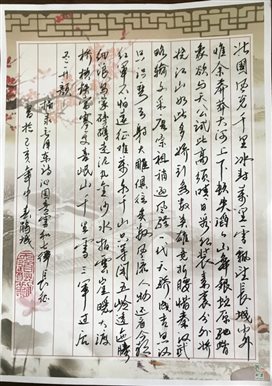 北国风光千里冰封万里雪飘望长城内外
惟余莽莽大河上下顿失滔滔山舞银蛇原驰蜡
象欲与天公试比高须晴日看红装素裹分外妖
娆江山如此多娇引无数英雄竞折腰惜秦皇汉武
略输文采唐宗宋祖稍逊风骚一代天骄成吉思汗
只识弯弓射大雕俱往矣数风流人物还看今朝
红军不怕远征难万水千山只等闲五岭逶迤腾
细浪乌蒙磅礴走泥丸金沙水拍云崖暖大渡
桥横铁索寒更喜岷山千里雪三军过后
尽开颜
毛泽东诗沁园春雪和七律长征
书于己亥年